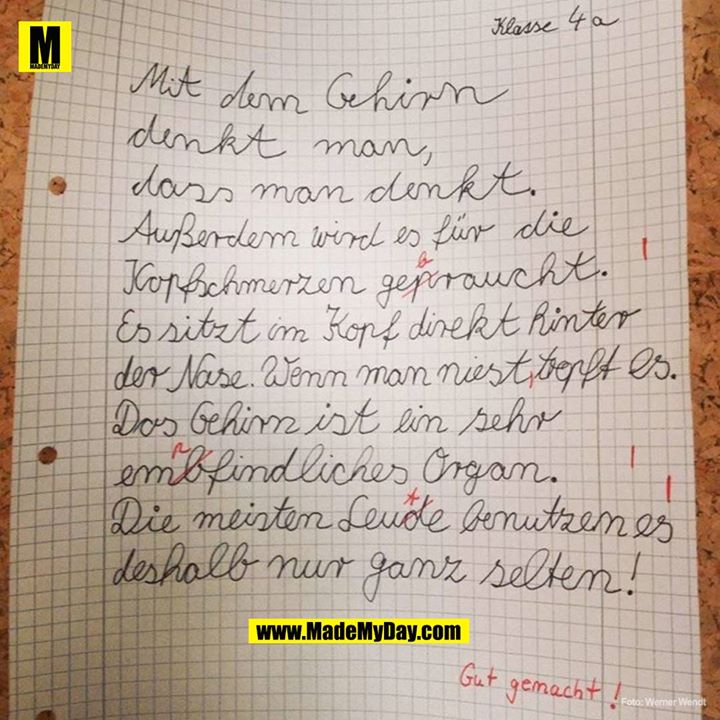 Klasse 4a
M
MADEMYDAY
Mit dem Gehirn
denkt man,
dass man denkt.
Außerdem wird es für die
b
Kopfschmerzen gepraucht.
Es sitzt im Kopf direkt hinter
der Nase. Wenn man niest, tropft es.
Das Gehirn ist ein sehr
embfindliches Organ.
t
Die meisten Leude benutzen es
deshalb nur ganz selten!
www.MadeMyDay.com
Gut gemacht!
Foto: Werner Wendt